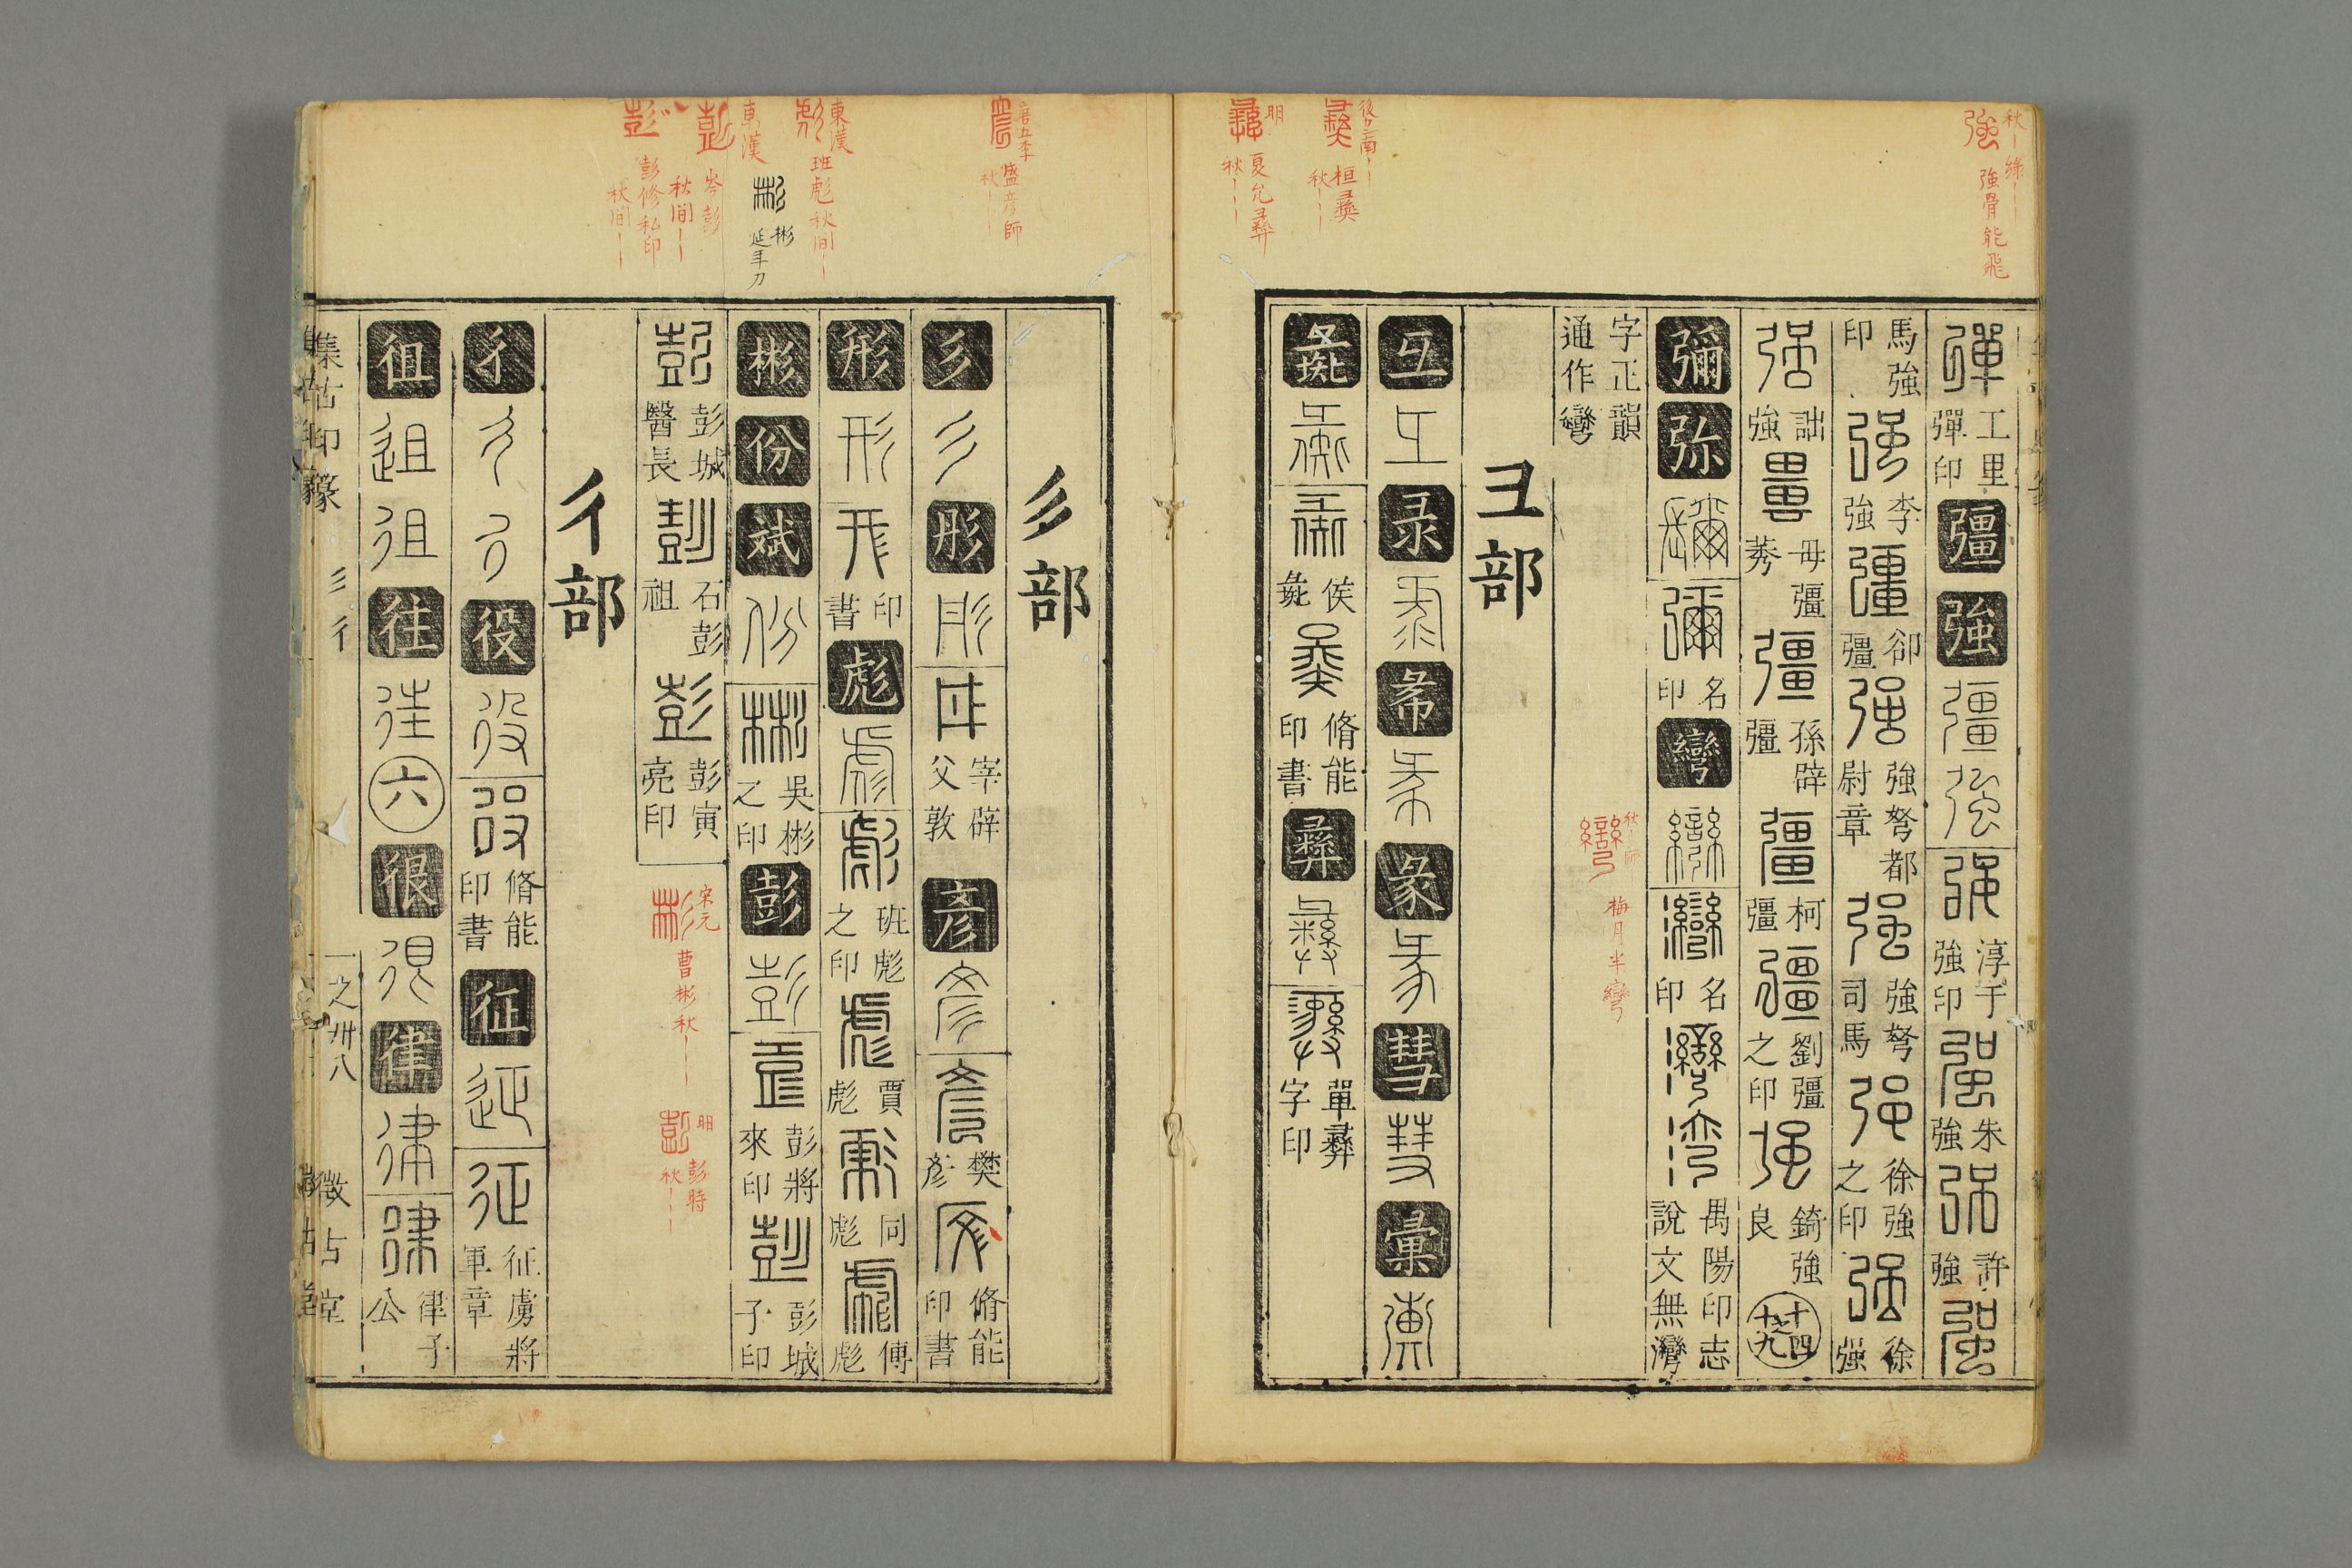 彈 工里彈印 彊 強 彊 強 強 淳于強印 強 朱強 強 許強 強
馬強印 強 李強 彊 卻彊 強 強弩都尉章 強 強弩司馬 強 徐強之印 強 徐強
強 詘強 畺 毋彊 彊 孫辟彊 彊 柯彊 彊 劉彊之印 強 錡強良 十四之十九
彌 弥 彌 彌 名印 彎 彎 彎 名印 彎 灣 禺陽印志說文無灣
字正韻通作彎
彐部
彑 彑 彔 彔 㣇 㣇 彖 彖 彗 彗 彙 彙
彘 彘 彘 侯彘 彘 脩能印書 彝 彝 彝 單彝字印
彡部
彡 彡 彤 彤 彤 宰辟父敦 彥 彥 彥 樊彥 彥 脩能印書
形 形 形 印書 彪 彪 彪 班彪之印 彪 賈彪 彪 同彪 彪 傅彪
彬 份 斌 份 彬 吳彬之印 彭 彭 彭 彭將來印 彭 彭城子印
彭 彭城醫長 彭 石彭祖 彭 彭寅亮印
彳部
彳 彳 彳 役 役 役 脩能印書 征 延 征 征虜將軍章
徂 徂 徂 往 往 六 很 很 律 律 律 律子公
集古印篆 彡彳 一之卅八 徵古堂
強 秋 綠 強骨能飛
彝 桓彝 秋
彝 明 夏允彝 秋
彎 秋 梅月半彎
彥 盛彥師 秋
彪 東漢 班彪 秋間
彬 彬 延年刀
彭 東漢 岑彭 秋間
彭 彭修私印 秋間
彬 宋元 曹彬 秋
彭 明 彭時 秋